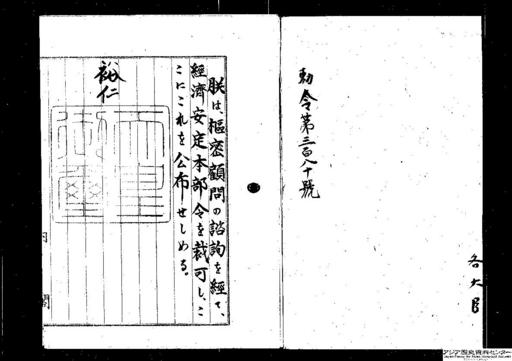 勅令第三百八十號
各大臣
朕は、樞密顧問の諮詢を經て、
經濟安定本部令を裁可し、こ
こにこれを公布せしめる。
裕仁
天皇
御璽
内閣
アジア歴史資料センター